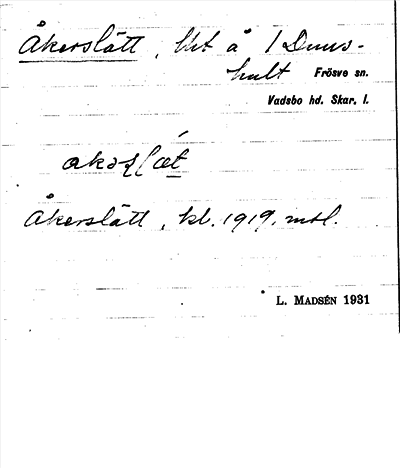 Åkerslätt, lht å 1 Duns-
hult Frösve sn.
Vadsbo hd. Skar. l.
Åkerslätt, kl. 1919. mtl.
L. MADSÉN 1931